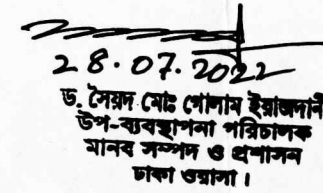 28.07.2022
ড. সৈয়দ মোঃ গোলাম ইয়াজদানী
উপ-ব্যবস্থাপনা পরিচালক
মানব সম্পদ ও প্রশাসন
ঢাকা ওয়াসা।